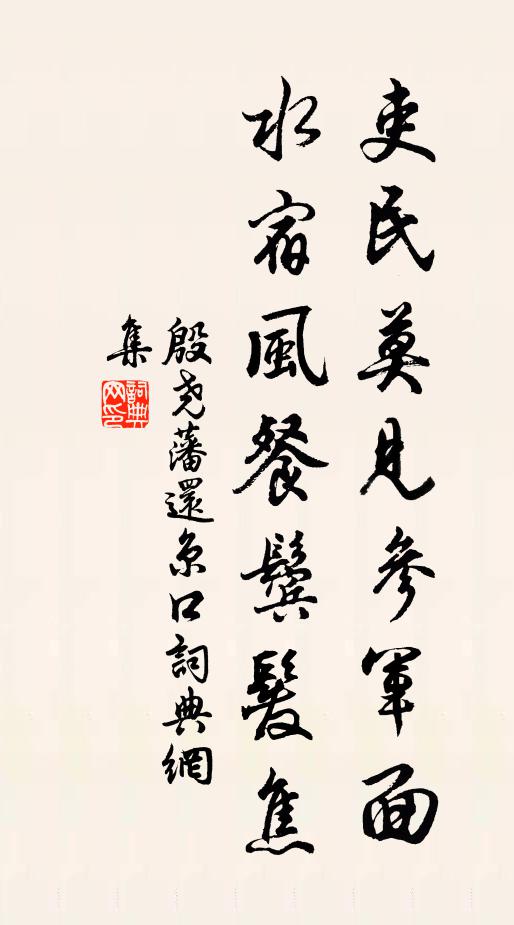 吏民莫見參軍面
水宿風餐鬢髮焦
殷堯藩還京口詞典網
集
詞典網印